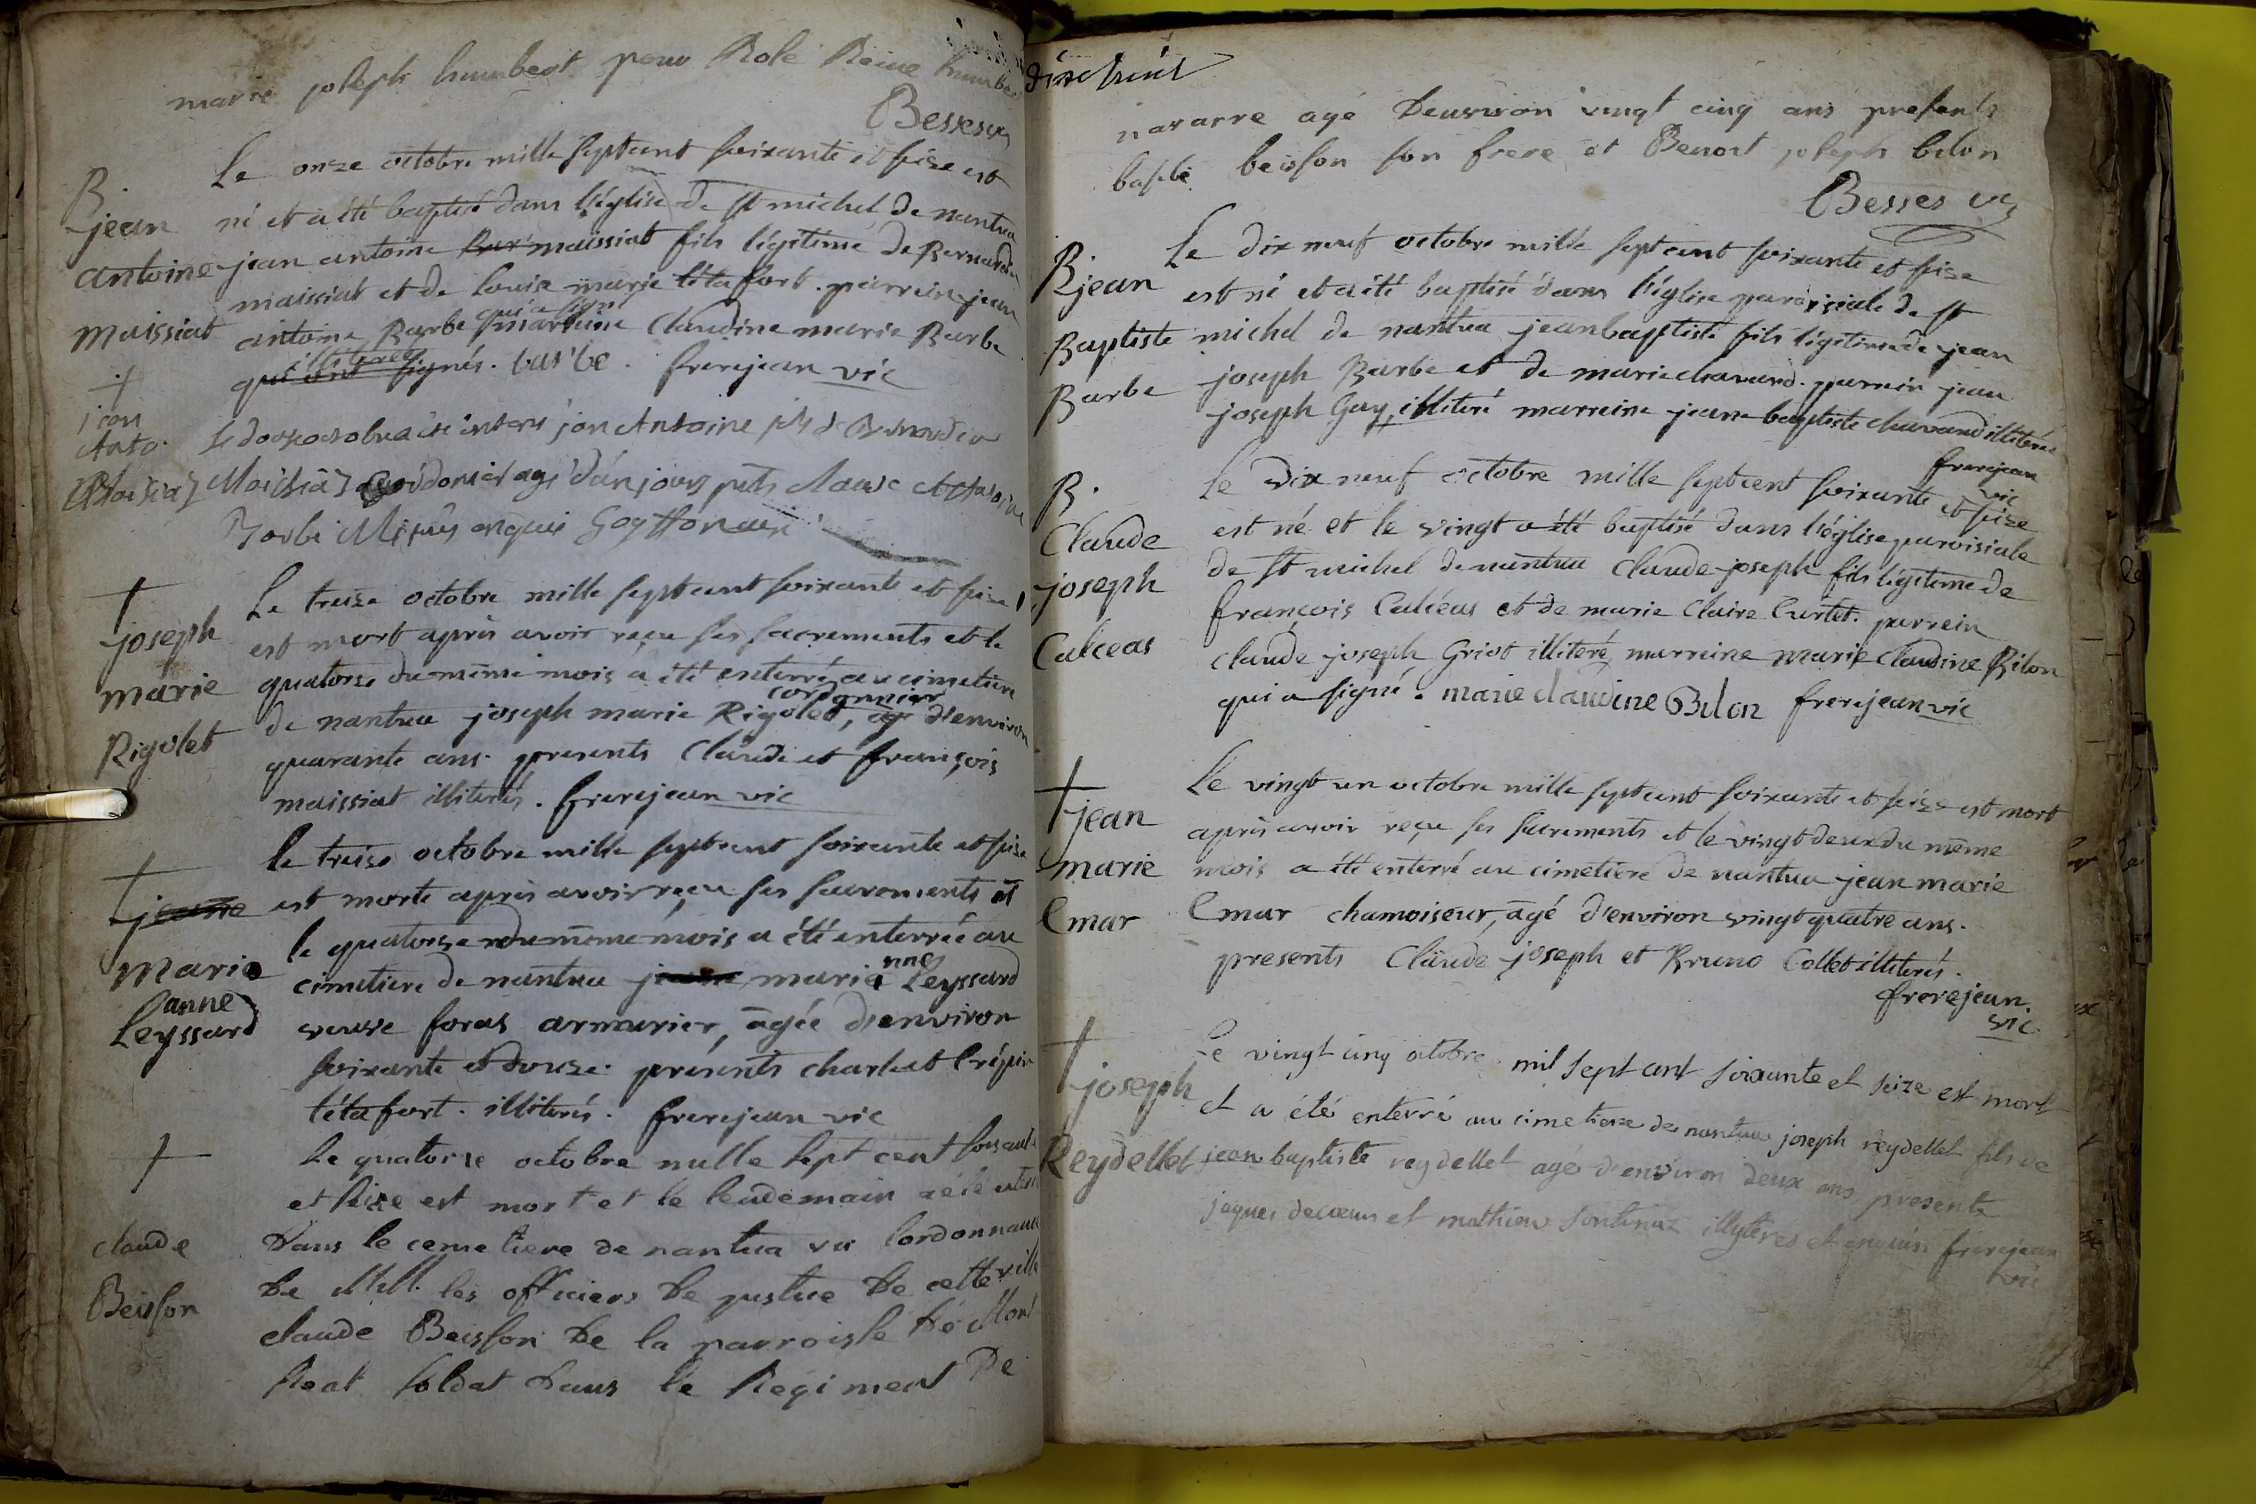 marie joseph humbert pour Role Reine humber
Besses vic
B
jean
antoine
maissiat
Le onze octobre mille septcent soixante et seize est
né et a été baptisé dans l'église de st michel de nantua
jean antoine maissiat fils légitime de Bernardin
maissiat et de louise marie tétafort. parrein jean
antoine Barbe qui a signé marraine Claudine marie Barbe
illiterée qui ont signés. barbe. frerejean vic
+
jean
Anto.
Maissiat
Le douze octobre a été enterré jean Antoine fils de Bernardin
Maissiat cordonier agé d'un jours pnts claude et antoine
Barbe
+
joseph
marie
Rigolet
Le treize octobre mille septcent soixant et seize
est mort après avoir reçu ses sacrements et le
quatorze du même mois a été enterré au cimetiere
de nantua joseph marie Rigolet, cordonnier agé d'environ
quarante ans. presents Claude et françois
maissiat illiterés. frerejean vic
+
jeanne
marie
anne
Leyssard
le treize octobre mille septcent soixante et seize
est morte après avoir reçu ses sacrements et
le quatorze du même mois a été enterrée au
cimetiere de nantua jeanne marianne Leyssard
veuve foras armurier, agée d'environ
soixante et douze. présents charle et Crépin
tétafort. illiterés. frerejean vic
+
claude
Beisson
Le quatorze octobre mille sept cent soixante
et seize est mort et le lendemain a été enterré
Dans le cemetiere de nantua vu lordonnance
De MM. les officiers De justice De cette ville
claude Beisson De la parroisse De Mont
Reat soldat Dans le Regiment De
dixehuit
navarre agé Denviron vingt cinq ans presents
basile beisson son frere et Benoit joseph bilon
Besses vic
B jean
Baptiste
Barbe
Le dix neuf octobre mille septcent soixante et seize
est né et a été baptisé dans l'église paroissiale de st
michel de nantua jean baptiste fils légitime de jean
joseph Barbe et de marie chavand. parrein jean
joseph Guy, illiteré marreine jeane baptiste chavand illiterée
frerejean
vic
B.
Claude
joseph
Calceas
Le Dix neuf octobre mille septcent soixante et seize
est né et le vingt a été baptisé dans l'église paroisiale
de st michel de nantua Claude joseph fils légitime de
françois Calceas et de marie Claire Curtet. parrein
claude joseph Griot illiteré marreine marie claudine Bilon
qui a signé. marie claudine Bilon frerejean vic
+
jean
marie
Emar
Le vingt un octobre mille septcent soixante et seize est mort
après avoir reçu ses sacrements et le vingt deux du même
mois a été enterré au cimetiere de nantua jean marie
Emar chamoiseur, agé d'environ vingt quatre ans.
presents Claude joseph et Bruno Collet illiterés.
frerejean
vic
+
joseph
Reydellet
Le vingt cinq octobre mil sept cent soixante et seize est mort
et a été enterré au cimetiere de nantua joseph reydellet fils de
jean baptiste reydellet agé d'environ deux ans presents
jaques decœur et mathieu illyteres et enquis frerejean
vic